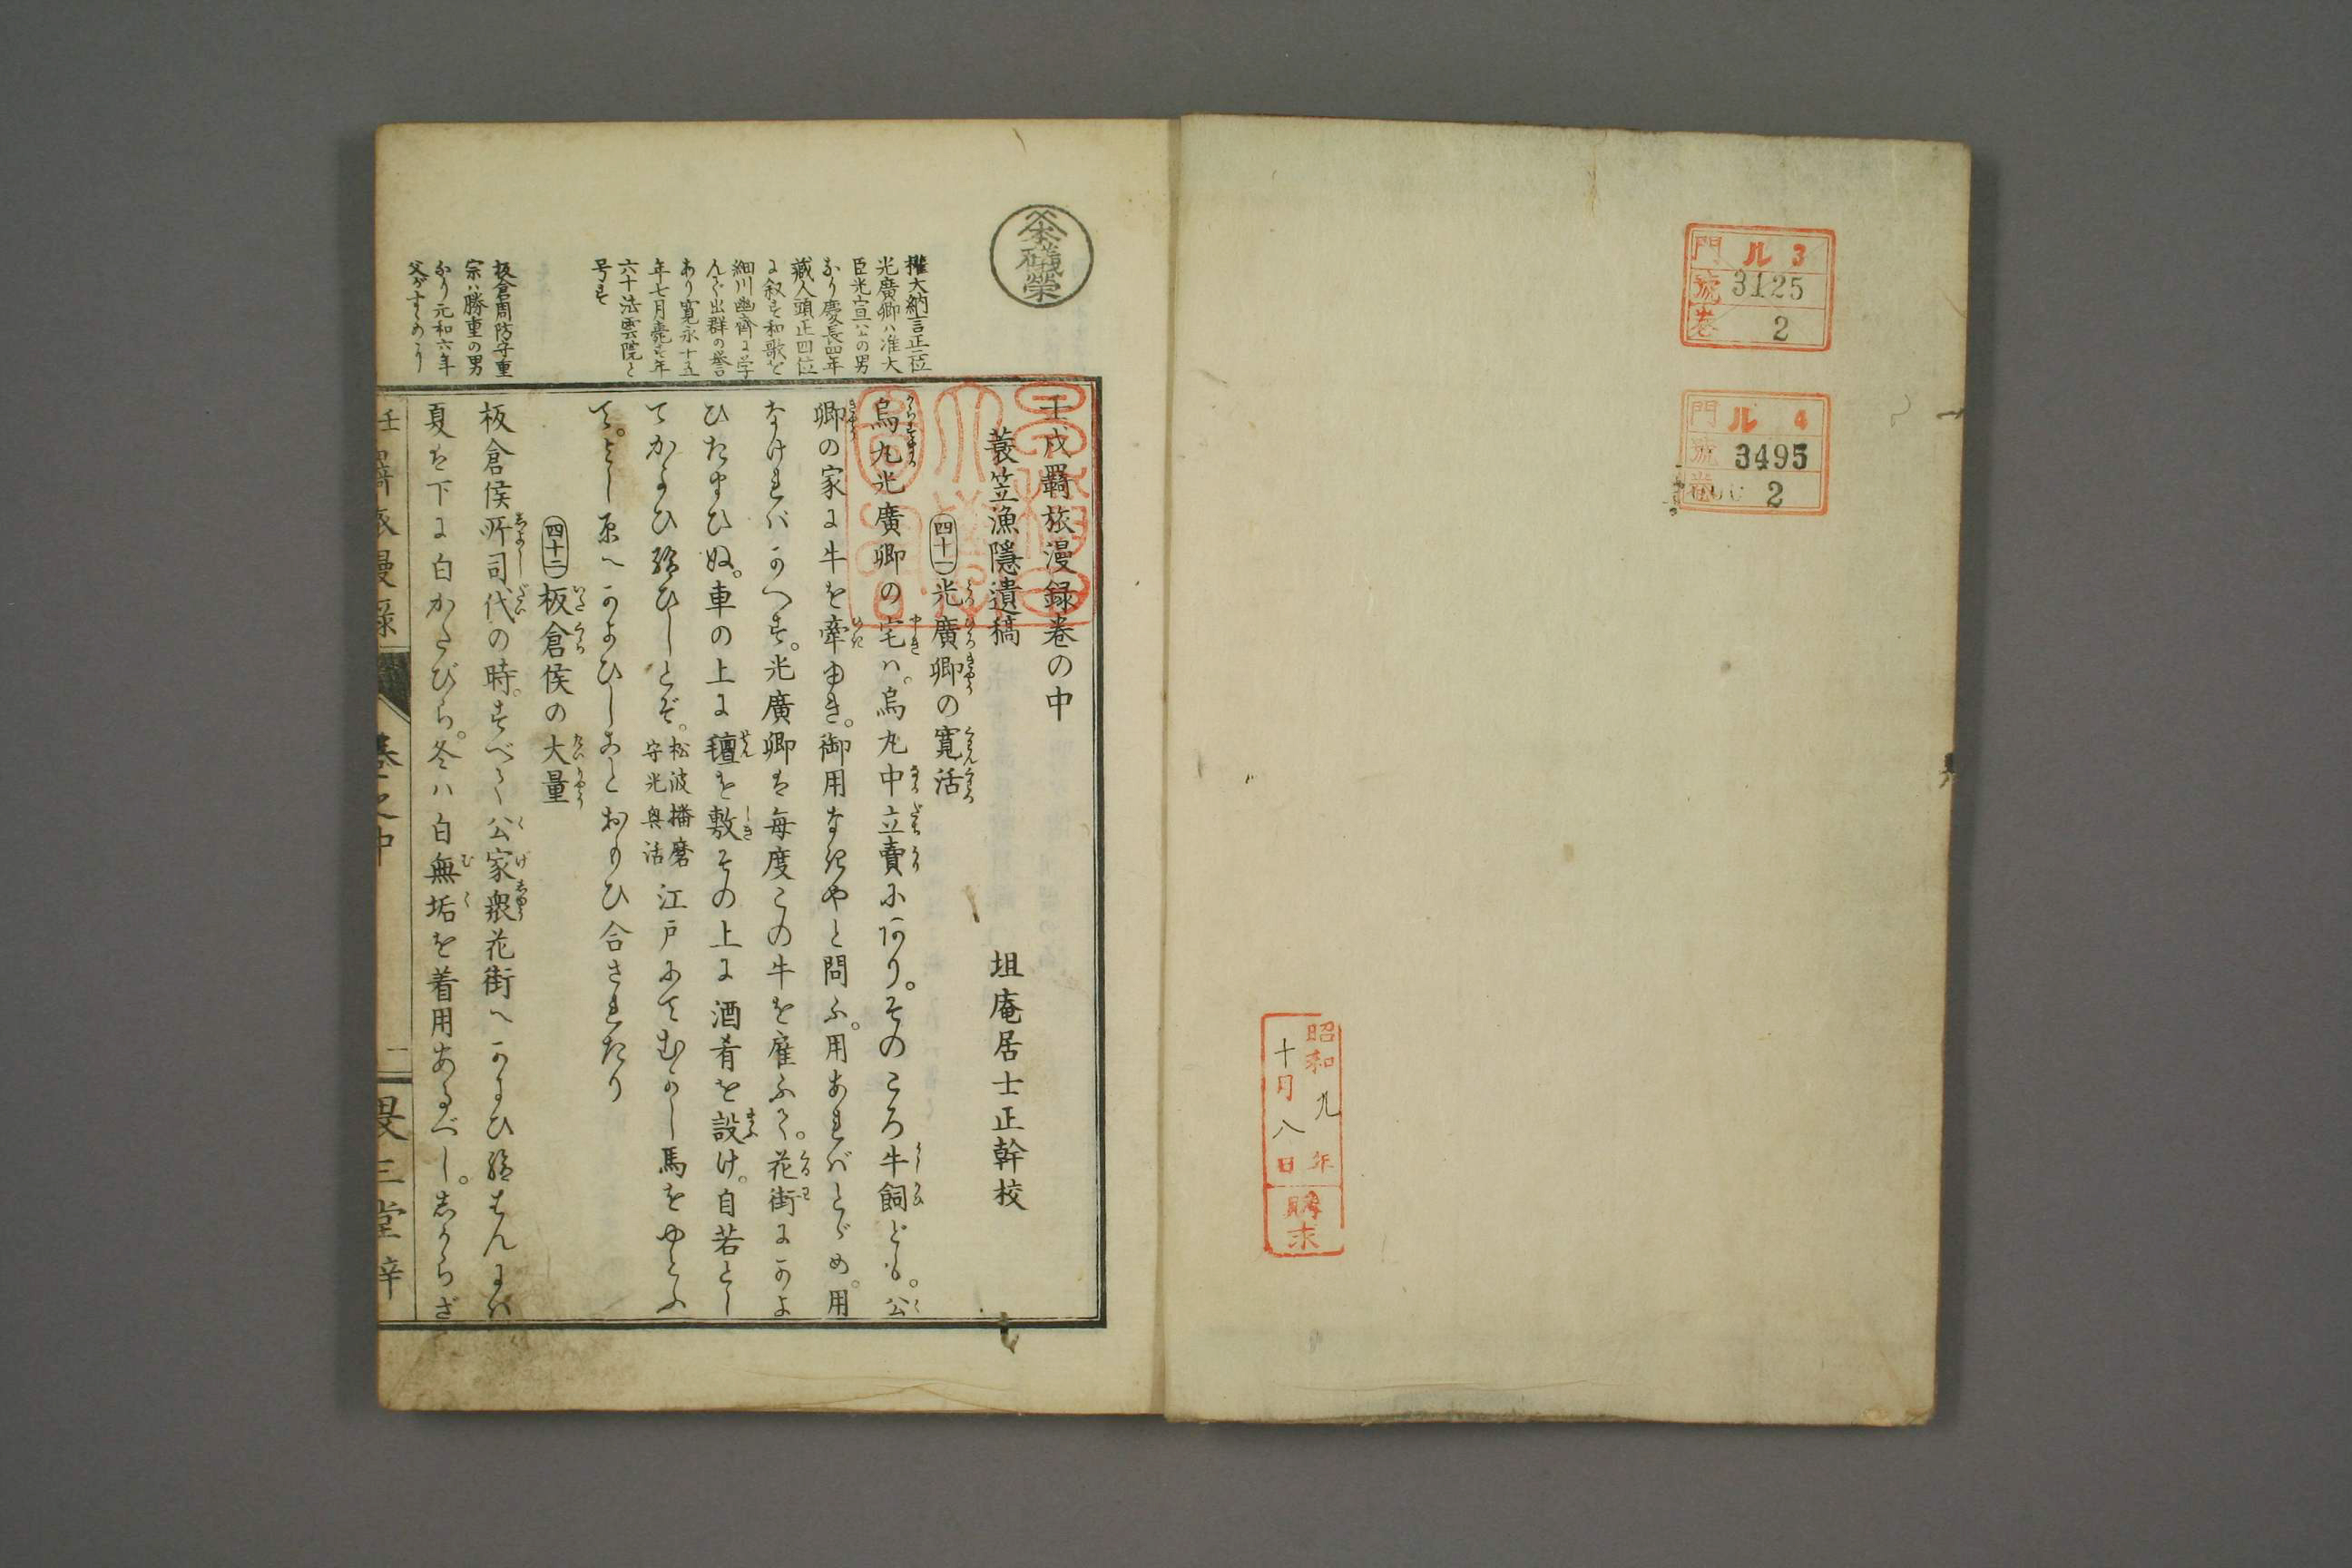 門 ル 3
號 3125
巻 2
門 ル 4
號 3495
巻 2
昭和九年
十月八日
購求
壬戌羇旅漫録巻の中
蓑笠漁隱遺稿 坥庵居士正幹校
四十一 光廣卿の寛活
烏丸光廣卿の宅ハ。烏丸中立賣にあり。そのころ牛飼ども。公
卿の家に牛を牽ゆき。御用なきやと問ふ。用あればとゞめ。用
なければかへす。光廣卿は毎度この牛を雇ふて。花街にかよ
ひたまひぬ。車の上に氊を敷その上に酒肴を設け。自若とし
てかよひ給ひしとぞ。松波播磨守光興活 江戸にてむかし馬をやとふ
て。よし原へかよひしことおもひ合されたり
四十二 板倉侯の大量
板倉侯所司代の時。すべて公家衆花街へかよひ給はんにハ
夏を下に白かたびら。冬ハ白無垢を着用あるべし。しからざ
權大納言正二位
光廣卿ハ准大
臣光宣公の男
なり慶長四年
藏人頭正四位
に叙す和歌を
細川幽齋に学
んで出群の誉
あり寛永十五
年七月薨ず年
六十法雲院と
号す
板倉周防守重
宗ハ勝重の男
なり元和六年
父がすゝめより
巻之中
畏三堂梓